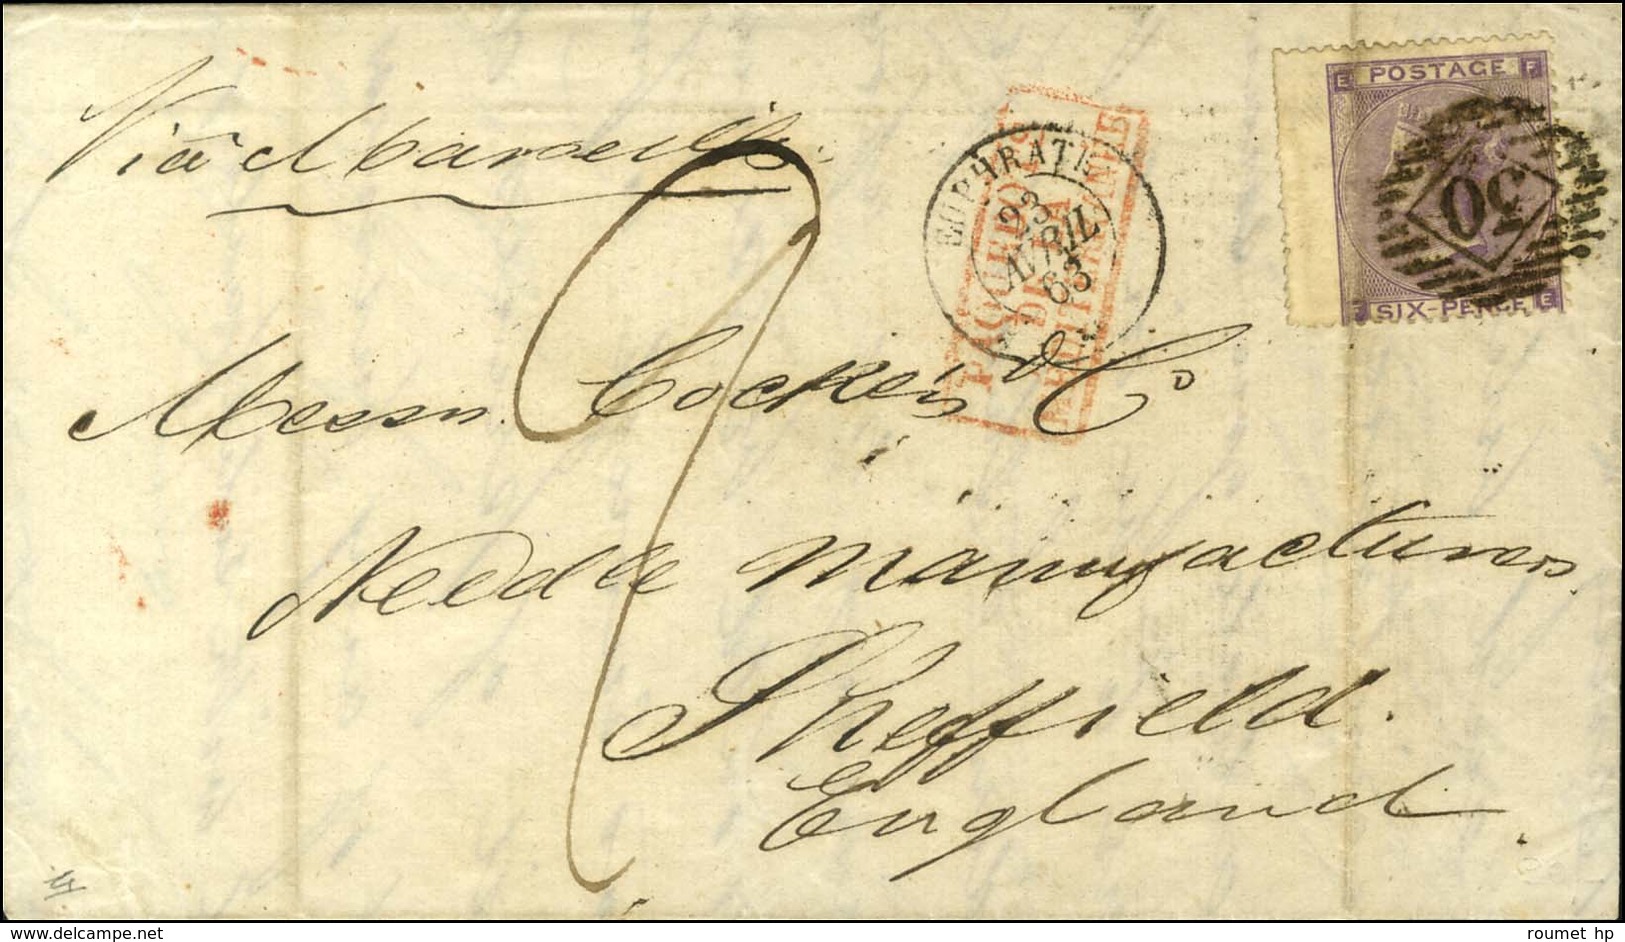 Via Marseilles
E POSTAGE F
50
F SIX-PENCE E
EUPHRATE
23
AVRIL
63
PAQUEBOTS
DE LA
MEDITERRANEE
Messrs Cocker & Co
Needle Manufacturers
Sheffield.
England.
www.delcampe.net
roumet hp